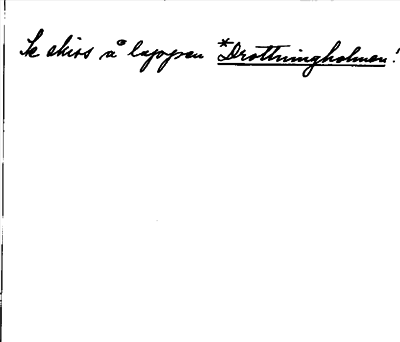 Se skiss å lappen *Drottningholmen!